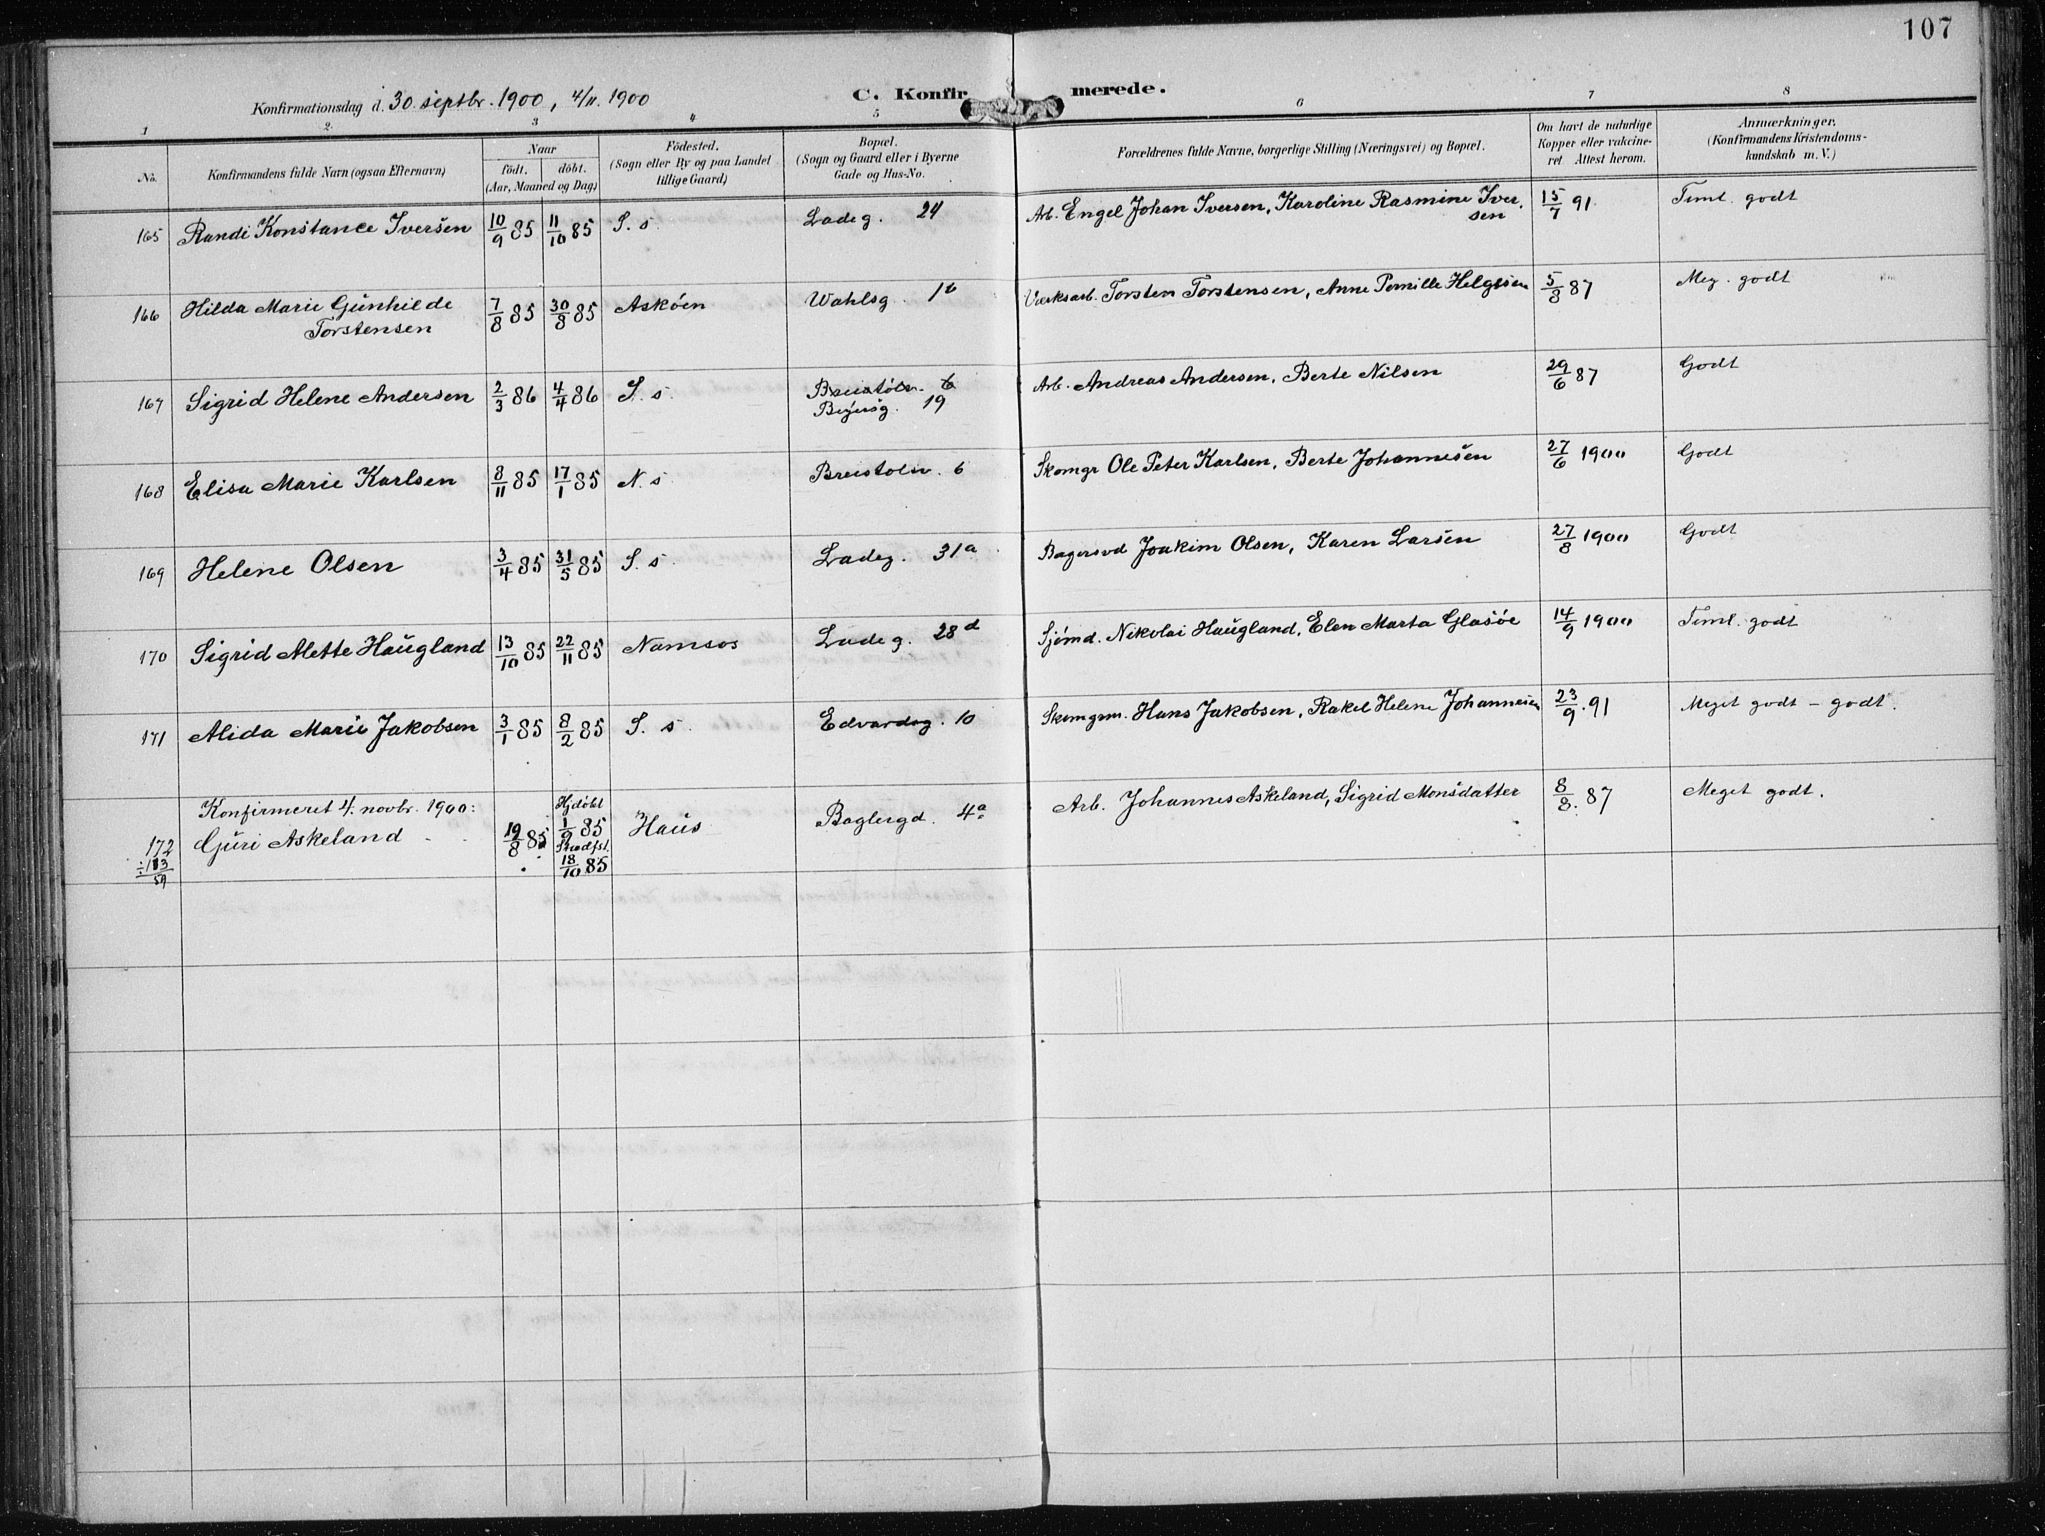 107
Konfirmationsdag d. 30 septbr. 1900, 4/11. 1900 C. Konfirmerede.
1 2. 3 4 5 6 7 8
No. Konfirmandens fulde Navn (ogsaa Efternavn) Naar født. døbt. (Aar, Maaned og Dag) Födested. (Sogn eller By og paa Landet tillige Gaard) Bopæl. (Sogn og Gaard eller i Byerne Gade og Hus-No. Forældrenes fulde Navne, borgerlige Stilling (Næringsvei) og Bopæl. Om havt de naturlige Kopper eller vakcineret. Attest herom. Anmærkninger. (Konfirmandens Kristendomskundskab m. V.)
165 Randi Konstance Iversen 10/9 85 11/10 85 S. s. Ladeg. 24 Arb. Engel Johan Iversen, Karoline Rasmine Iversen 15/7 91 Timl. godt
166 Hilda Marie Gunhilde 7/8 85 30/8 85 Askøen Wahlsg. 1b Værksarb. Torsten Torstensen, Anne Pernille Helgesen 5/8 87 Meg. godt
Torstensen
167 Sigrid Helene Andersen 2/3 86 4/4 86 S. s. Breistølsv. 6 Arb. Andreas Andersen, Berte Nilsen 29/6 87 Godt
19
168 Elisa Marie Karlsen 8/11 85 17/1 85 N. s. Breistolsv. 6 Skomgr Ole Peter Karlsen, Berte Johannesen 27/6 1900 Godt
169 Helene Olsen 3/4 85 31/5 85 S. s. Ladeg. 31a Bagersvd Joakim Olsen, Karen Larsen 27/8 1900 Godt
170 Sigrid Alette Haugland 13/10 85 22/11 85 Namsos Ladeg. 28d Sjømd. Nikolai Haugland, Elen Marta Glasøe 14/9 1900 Timl. godt
171 Alida Marie Jakobsen 3/1 85 8/2 85 S. s. Edvardsg. 10 Skomgrm. Hans Jakobsen, Rakel Helene Johannesen 23/9. 91 Meget godt – godt.
Konfirmeret 4. novbr. 1900: Hjdøbt
172 Guri Askeland 19/8 85 1/9 85 Haus Baglergd. 4a Arb. Johannes Askeland, Sigrid Monsdatter 8/8. 87 Meget godt.
÷113 Stadfst.
59 18/10 85